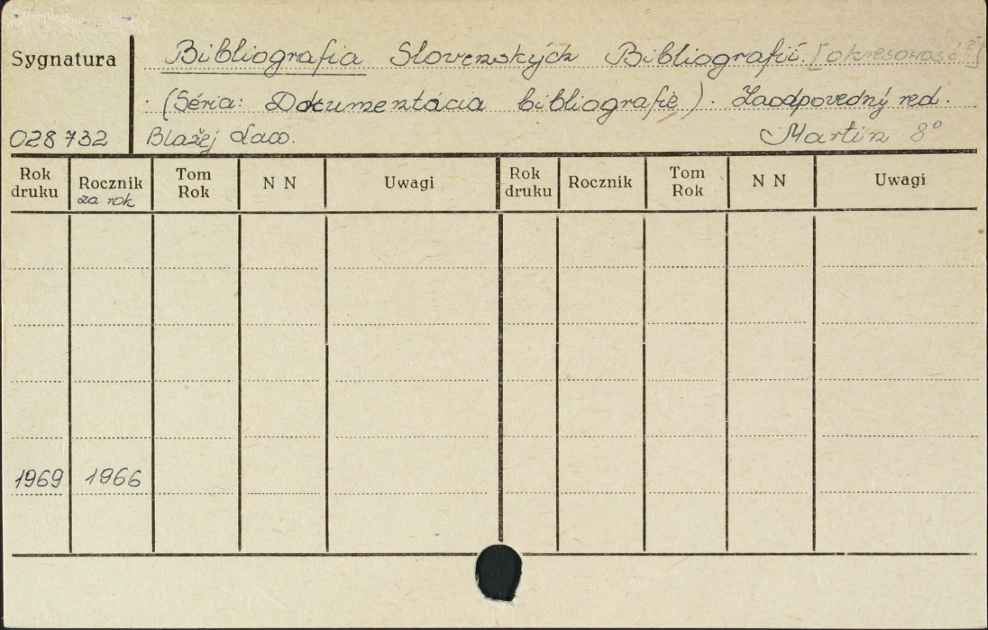 Sygnatura Bibliografia Slovenských Bibliografií. [okresowość?]
(Séria: Dokumentácia bibliografie). Zaodpovedný red.
028732 Blažej Laco. Martin 8°
Rok druku Rocznik za rok Tom Rok N N Uwagi Rok druku Rocznik Tom Rok N N Uwagi
1969 1966